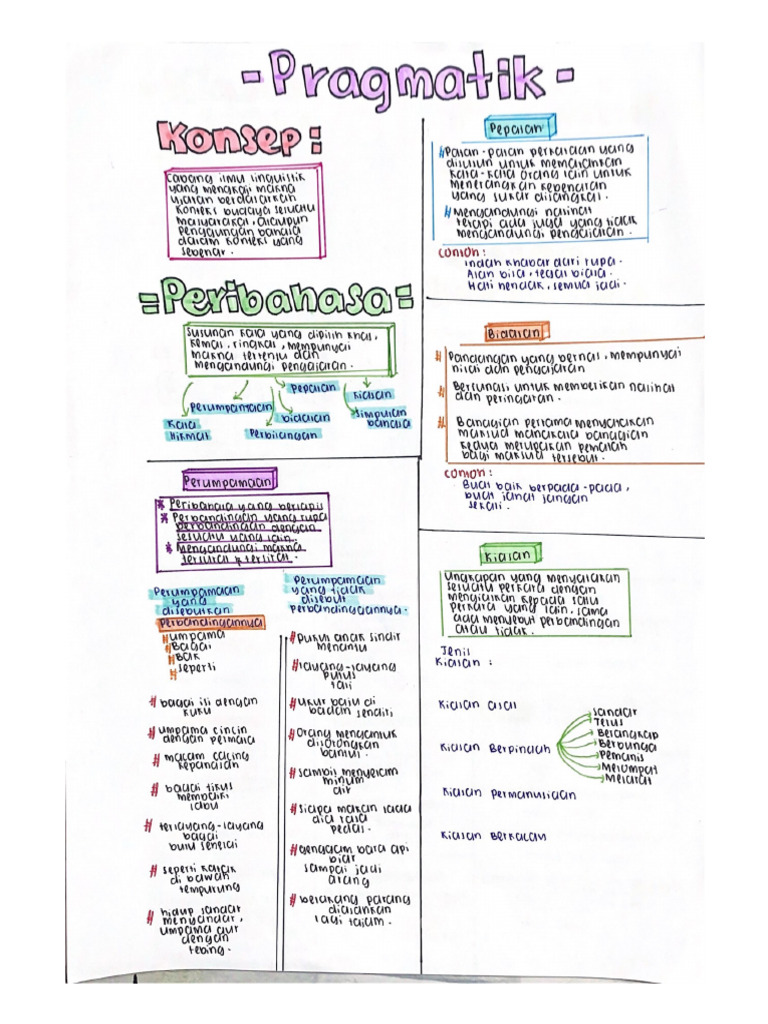 - Pragmatik -
Konsep :
Cabang ilmu linguistik
yang mengkaji makna
ujaran berdasarkan
konteks budaya sesuatu
masyarakat, ataupun
penggunaan bahasa
dalam konteks yang
sebenar.
= Peribahasa =
Susunan kata yang dipilih khas,
kemas, ringkas, mempunyai
makna tertentu dan
mengandungi pengajaran.
Perumpamaan
Pepatah
Kiasan
Kata
Hikmat
Bidalan
Perbilangan
Simpulan
bahasa
Perumpamaan
* Peribahasa yang berlapis
* Perbandingan yang rupa
perbandingan dengan
sesuatu yang lain.
* Mengandungi makna
tersurat & tersirat.
Perumpamaan
yang
disebutkan
perbandingannya
# umpama
# Bagai
# Bak
# seperti
# bagai isi dengan
kuku
# umpama cincin
dengan permata
# macam cacing
kepanasan
# bagai tikus
membaiki
labu
# terlayang-layang
bagai
bulu senelai
# seperti katak
di bawah
tempurung
# hidup sandar
menyandar,
umpama aur
dengan
tebing.
Perumpamaan
yang tidak
disebut
perbandingannya.
# pukul anak sindir
menantu
# layang-layang
putus
tali
# ukur baju di
badan sendiri
# orang mengamuk
disorongkan
bantul
# sambil menyelam
minum
air
# siapa makan lada
dia rasa
pedas.
# genggam bara api
biar
sampai jadi
arang
# belakang parang
diasahkan
lagi tajam.
Pepatah
# Patah-patah perkataan yang
disusun untuk mematahkan
kata-kata orang lain untuk
menerangkan kebenaran
yang sukar disangkal.
# Mengandungi nasihat
tetapi ada juga yang tidak
mengandungi pengajaran.
contoh :
Indah khabar dari rupa.
Alah bisa, tegal biasa.
Hati hendak, semua jadi.
Bidalan
# Pandangan yang bernas, mempunyai
nilai dan pengajaran
# Berfungsi untuk memberikan nasihat
dan peringatan.
# Bahagian pertama menyatakan
maksud manakala bahagian
kedua merupakan pemanis
bagi maksud tersebut.
contoh :
Buat baik berpada-pada,
buat jahat jangan
sekali.
Kiasan
Ungkapan yang menyatakan
sesuatu perkara dengan
mengiaskan kepada satu
perkara yang lain, sama
ada menyebut perbandingan
atau tidak.
Jenis
Kiasan :
Kiasan asal
Kiasan Berpindah
Sandar
Terus
Berangkap
Berbunga
Pemanis
Melompat
Melarat
Kiasan permanusiaan
Kiasan Berkalau